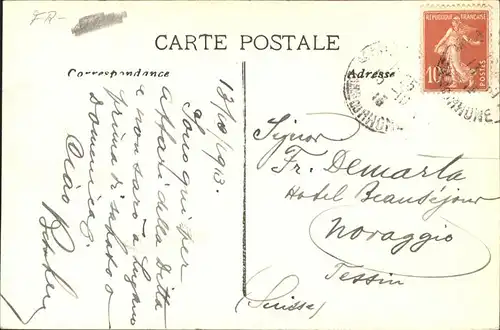 FR-
CARTE POSTALE
Correspondance
Adresse
REPUBLIQUE FRANÇAISE
10
POSTES
13/10/1913.
Sono qui per
affari della Ditta
e non sarò a Lugano
prima di sabato o
domenica.
Ciao
Signor
Fr. Demarta
Hotel Beauséjour
Novaggio
Tessin
(Suisse)